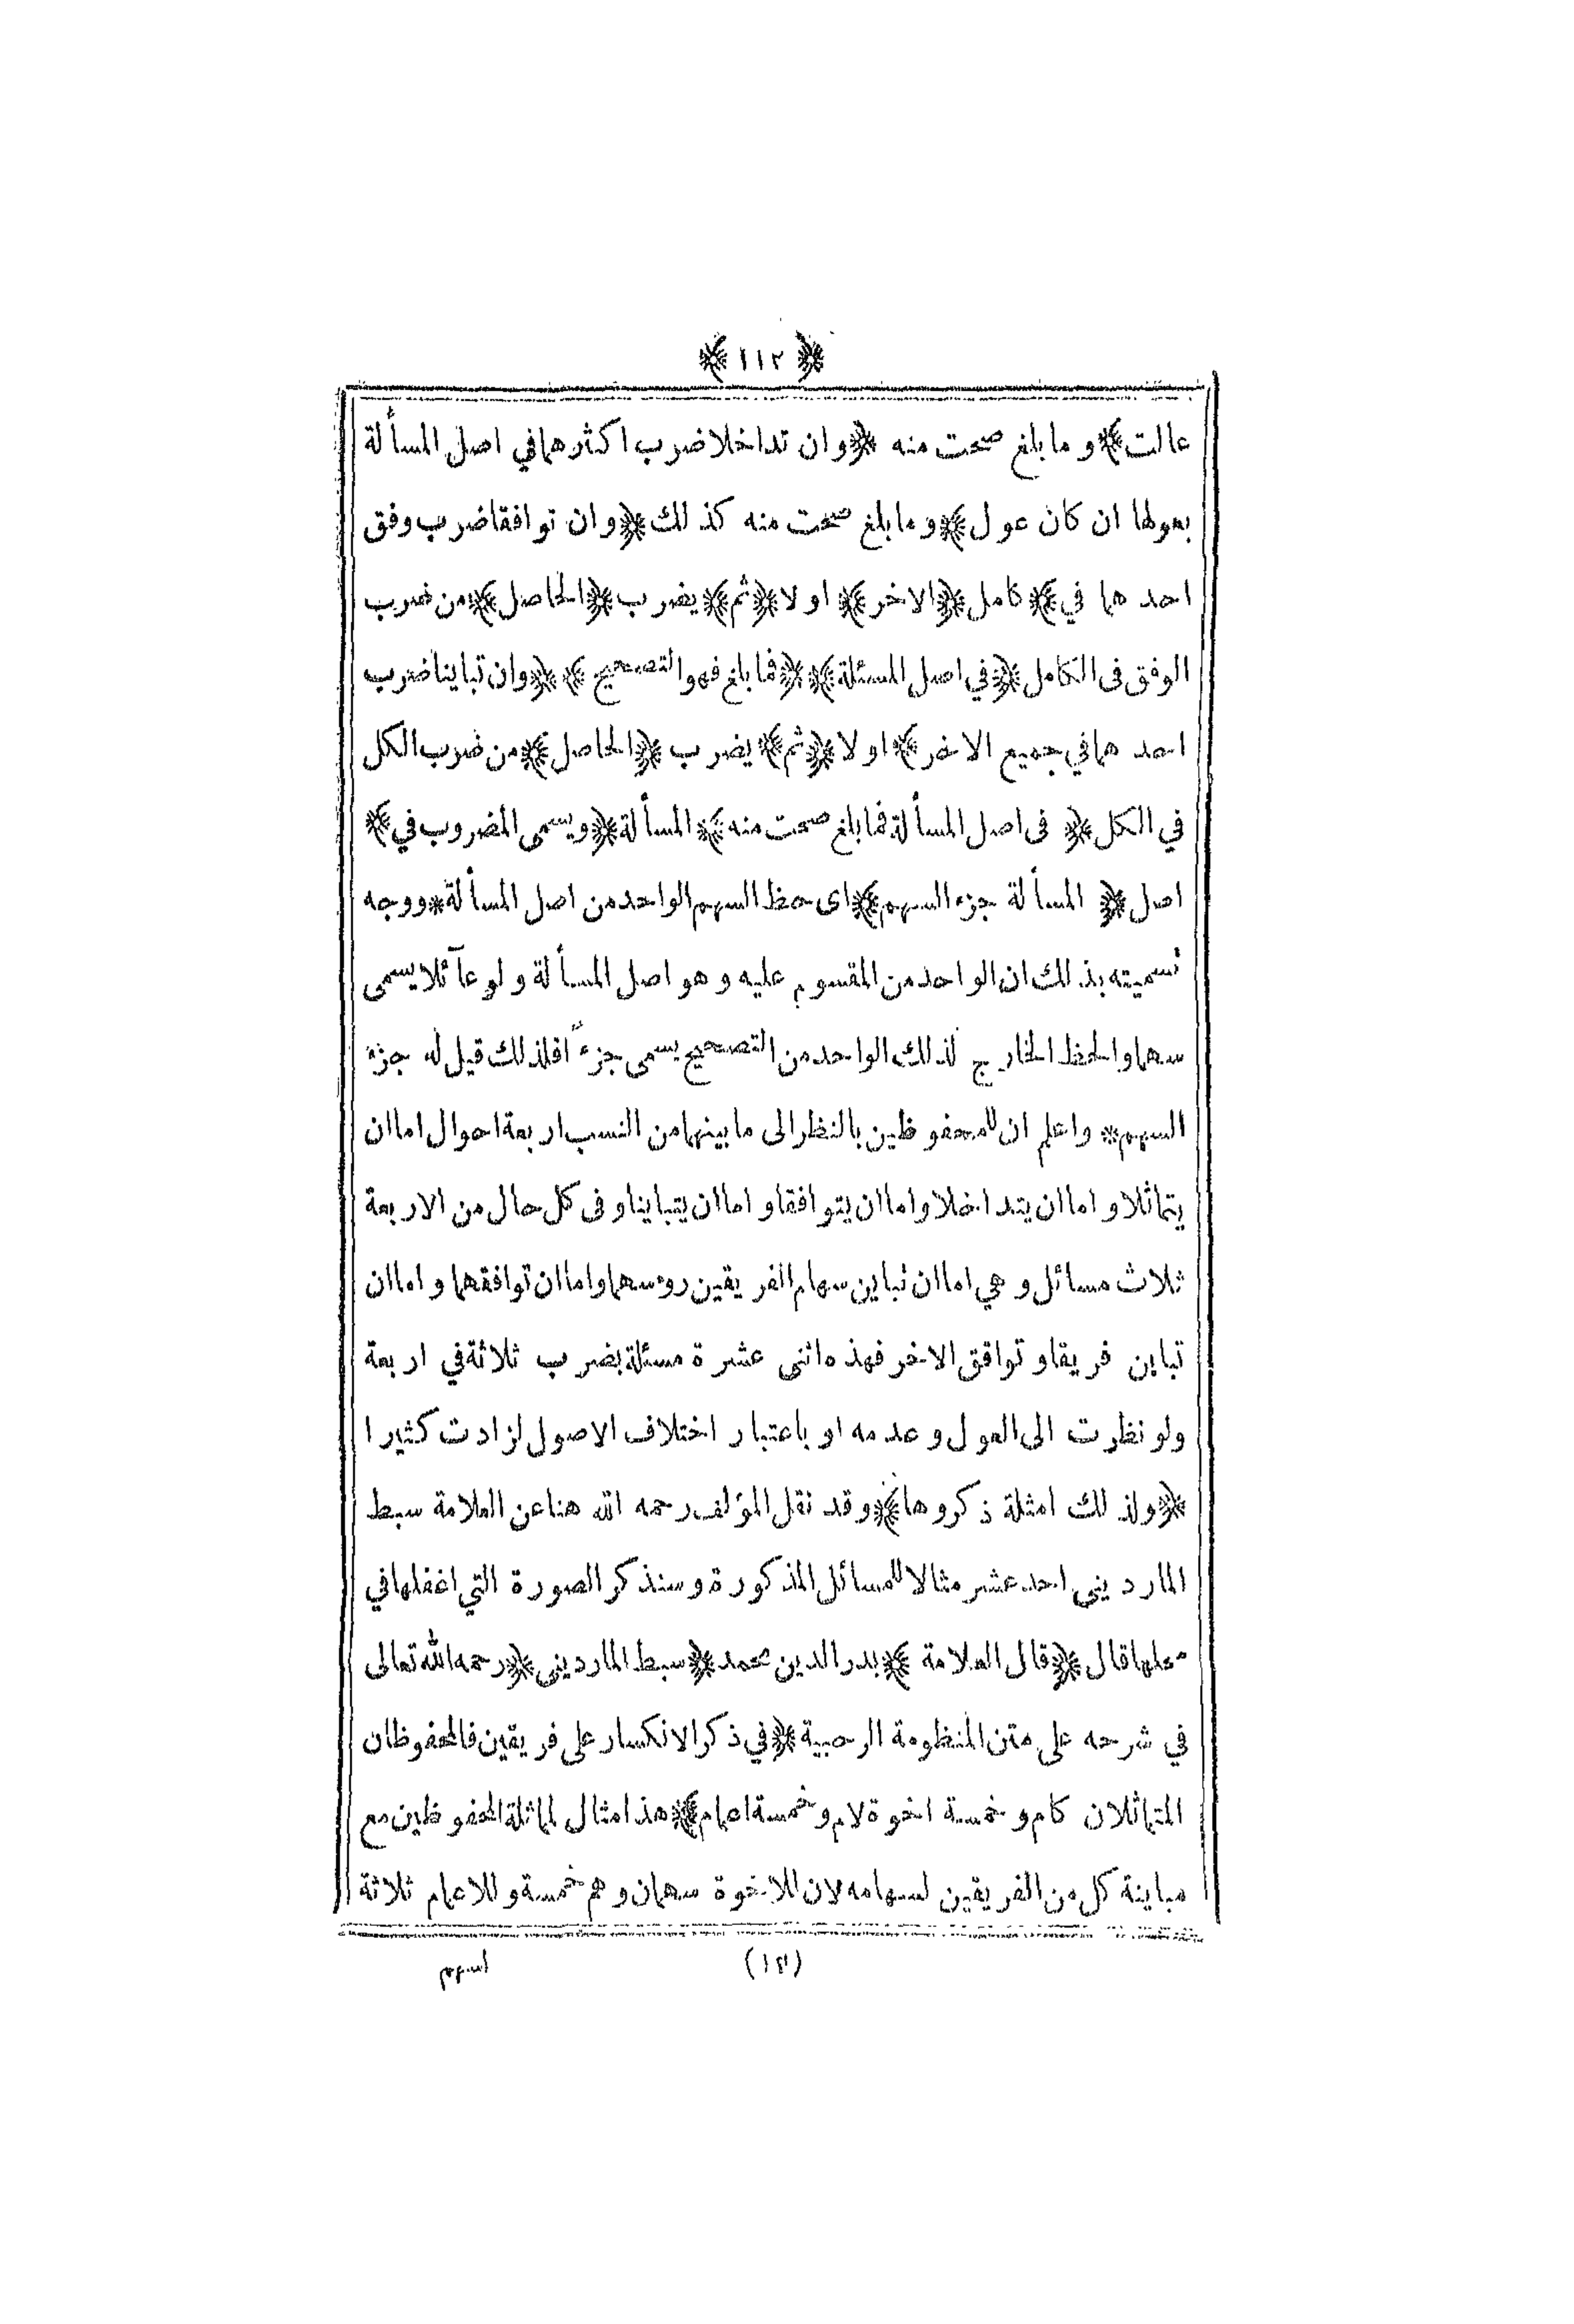 ﴿ ١١٢ ﴾
عالت﴾ و ما بلغ صحت منه ﴿وان تداخلا ضرب اكثرهما في اصل المسألة
بعولها ان كان عول﴾ و ما بلغ صحت منه كذلك ﴿وان توافقا ضرب وفق
احد هما في﴾ كامل ﴿الاخر﴾ او لا ﴿ثم﴾ يضرب ﴿الحاصل﴾ من ضرب
الوفق فى الكامل ﴿في اصل المسئلة﴾ ﴿فما بلغ فهو التصحيح﴾ ﴿وان تباينا ضرب
احد هما في جميع الاخر﴾ او لا ﴿ثم﴾ يضرب ﴿الحاصل﴾ من ضرب الكل
في الكل ﴿ فى اصل المسألة فما بلغ صحت منه﴾ المسألة ﴿ويسمى المضروب في﴾
اصل ﴿ المسألة جزء السهم﴾ اى حظ السهم الواحد من اصل المسألة * ووجه
تسميته بذلك ان الواحد من المقسوم عليه و هو اصل المسألة و لو عآئلا يسمى
سهما والحظ الخارج لذلك الواحد من التصحيح يسمى جزءً افلذلك قيل له جزء
السهم * واعلم ان للمحفو ظين بالنظر الى ما بينهما من النسب اربعة احوال اما ان
يتماثلا و اما ان يتداخلا واما ان يتوافقا و اما ان يتباينا و فى كل حال من الاربعة
ثلاث مسائل و هي اما ان تباين سهام الفريقين روءسهما واما ان توافقهما و اما ان
تباين فريقا و توافق الاخر فهذه اثنى عشرة مسئلة بضرب ثلاثة في اربعة
ولو نظرت الى العول و عدمه او باعتبار اختلاف الاصول لزادت كثيرا
﴿ولذلك امثلة ذكروها﴾ وقد نقل المؤلف رحمه الله هنا عن العلامة سبط
المارديني احد عشر مثالا للمسائل المذكورة و سنذكر الصورة التي اغفلها في
محلها قال ﴿قال العلامة ﴾ بدر الدين محمد ﴿سبط المارديني ﴿رحمه الله تعالى
في شرحه على متن المنظومة الرحبية ﴿في ذكر الانكسار على فريقين فالمحفوظان
المتماثلان كام و خمسة اخوة لام و خمسة اعمام﴾ هذا مثال لمماثلة المحفو ظين مع
مباينة كل من الفريقين لسهامه لان للاخوة سهمان و هم خمسة و للاعمام ثلاثة
اسهم